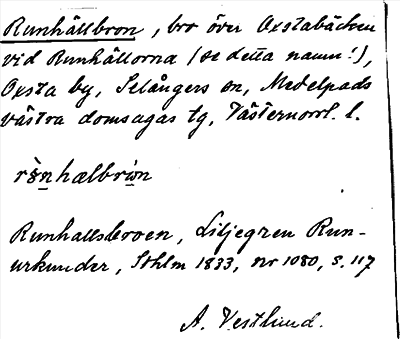 Runhällbron, bro över Oxstabäcken
vid Runhällorna (se detta namn!),
Oxsta by, Selångers sn, Medelpads
västra domsagas tg, Västernorrl. l.
Runhallsbroen, Liljegren Run-
urkunder, Sthlm 1833, nr 1080, s. 117
A. Vestlund.